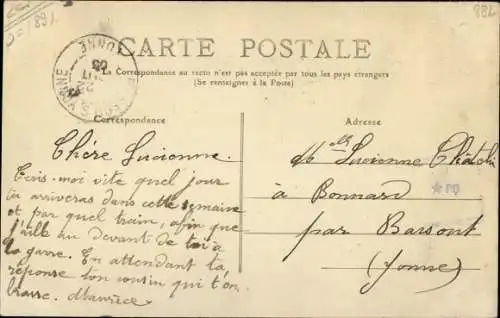 882
CARTE POSTALE
La Correspondance au recto n'est pas acceptée par tous les pays étrangers
(Se renseigner à la Poste)
YONNE
Correspondance
Adresse
Chère Lucienne.
Ecris-moi vite quel jour
tu arriveras dans cette semaine
et par quel train, afin que
j'aille au devant de toi à
la garre. En attendant ta
réponse ton cousin qui t'em
brasse. Maurice
Melle Lucienne
à Bonnard
par Bassout
(Yonne)